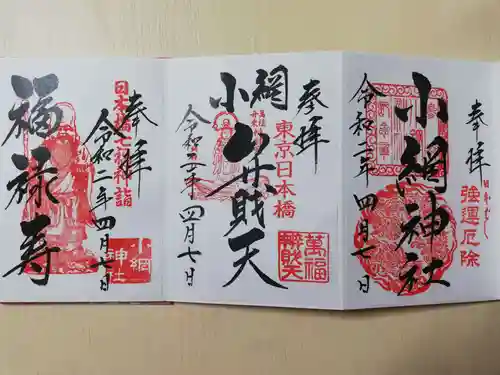 奉拝
強運厄除
小網神社
令和二年 四月七日
奉拝
東京日本橋
小網
弁財天
萬福
舞弁天
令和二年 四月七日
奉拝
日本橋七福神詣
令和二年 四月七日
小網
神社
福禄寿